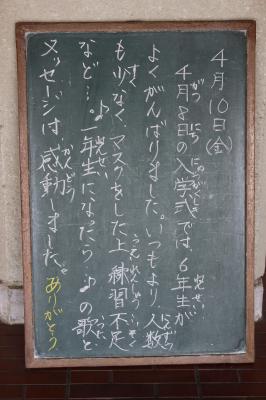 4月10日(金)
4月8日の入学式では、6年生が
よくがんばりました。いつもより、人数
も少なく、マスクをした上、練習不足
など…。♪一年生になったら♪の歌と
メッセージは、感動しました。ありがとう